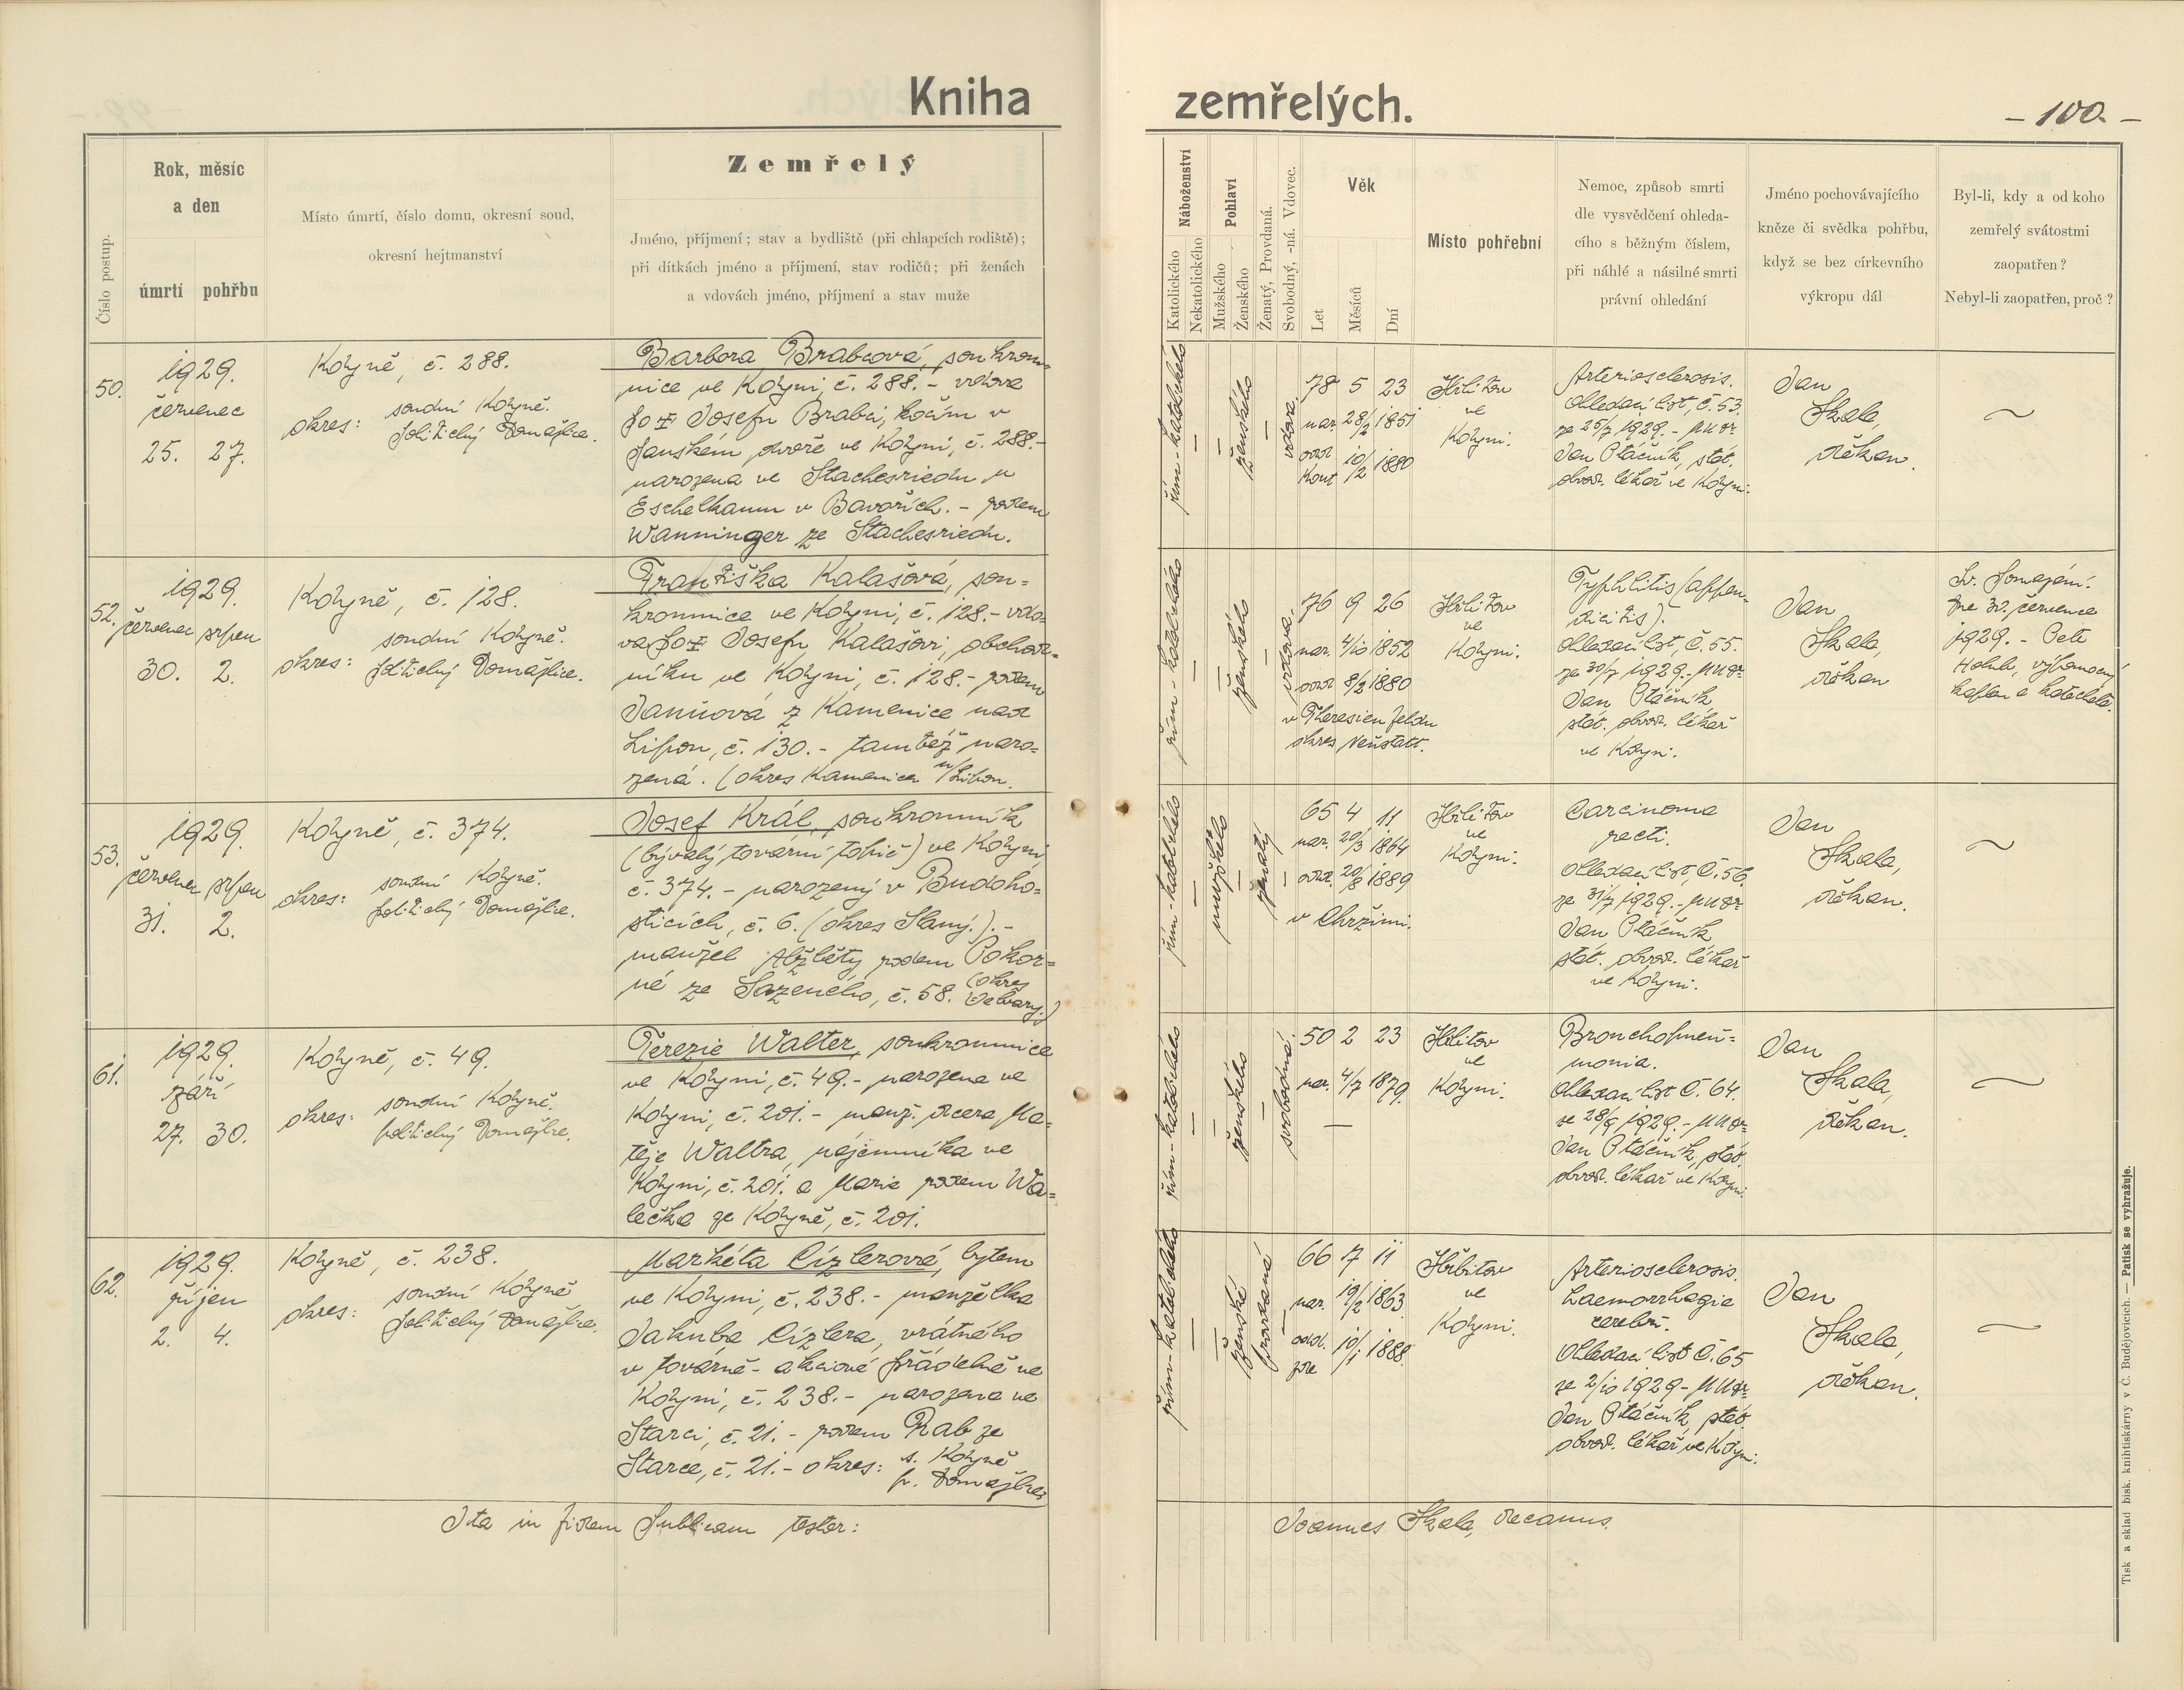 Kniha zemřelých.
- 100. -
Číslo postup.
Rok, měsíc
a den
úmrtí pohřbu
Místo úmrtí, číslo domu, okresní soud,
okresní hejtmanství
Zemřelý
Jméno, příjmení; stav a bydliště (při chlapcích rodiště);
při dítkách jméno a příjmení, stav rodičů; při ženách
a vdovách jméno, příjmení a stav muže
Náboženství
Katolického
Nekatolického
Pohlaví
Mužského
Ženského
Ženatý, Provdaná.
Svobodný, -ná. Vdovec.
Věk
Let
Měsíců
Dní
Místo pohřební
Nemoc, způsob smrti
dle vysvědčení ohleda-
cího s běžným číslem,
při náhlé a násilné smrti
právní ohledání
Jméno pochovávajícího
kněze či svědka pohřbu,
když se bez církevního
výkropu dál
Byl-li, kdy a od koho
zemřelý svátostmi
zaopatřen?
Nebyl-li zaopatřen, proč?
50.
1929.
červenec
25. 27.
Kdyně, č. 288.
okres: soudní Kdyně.
politický Domažlice.
Barbora Brabcová, soukrom-
nice ve Kdyni, č. 288. - vdova
po † Josefu Brabci, kočím v
panském dvoře ve Kdyni, č. 288. -
narozena ve Stachesriedu u
Eschelkamu v Bavořích. - rodem
Wanninger ze Stachesriedu.
řím - katolického
ženského
vdova
78 5 23
nar. 28/2 1851
odd. 10/2 1880
Kout
Hřbitov
ve
Kdyni.
Arteriosclerosis.
Ohledací list, č. 53.
ze 25/7 1929. - MUDr
Jan Ptáčník, stát.
obvod. lékař ve Kdyni.
Jan
Skala,
děkan.
52.
1929.
červenec srpen
30. 2.
Kdyně, č. 128.
okres: soudní Kdyně.
politický Domažlice.
Františka Kalašová, sou=
kromnice ve Kdyni, č. 128. - vdo-
va po † Josefu Kalašovi, obchod=
níku ve Kdyni, č. 128. - rodem
Janúová z Kamenice nad
Lipou, č. 130. - tamtéž naro=
zená. (okres Kamenice n/Lipou.
řím - katolického
ženského
vdova
76 9 26
nar. 4/10 1852
odd. 8/2 1880
v Theresienfeldu
okres Neustadt.
Hřbitov
ve
Kdyni.
Typhlitis (appen-
dicitis).
Ohledací list, č. 55.
ze 30/7 1929. - MUDr
Jan Ptáčník,
stát. obvod. lékař
ve Kdyni.
Jan
Skala,
děkan
Sv. pomazání.
dne 30. července
1929. - Petr
Holub, výpomocný
kaplan a katecheta.
53.
1929.
červenec srpen
31. 2.
Kdyně, č. 374.
okres: soudní Kdyně.
politický Domažlice.
Josef Král, soukromník
(bývalý tovární topič) ve Kdyni
č. 374. - narozený v Budoho=
sticích, č. 6. (okres Slaný.). -
manžel Alžběty rodem Pokor=
né ze Sazeného, č. 58. (okres
Velvary.)
řím - katolického
mužského
ženatý
65 4 11
nar. 20/3 1864
odd. 20/8 1889
v Chržími.
Hřbitov
ve
Kdyni.
Carcinoma
recti.
Ohledací list, č. 56.
ze 31/7 1929. - MUDr
Jan Ptáčník
stát. obvod. lékař
ve Kdyni.
Jan
Skala,
děkan.
61.
1929.
září
27. 30.
Kdyně, č. 49.
okres: soudní Kdyně.
politický Domažlice.
Terezie Walter, soukromnice
ve Kdyni, č. 49. - narozena ve
Kdyni, č. 201. - manž. dcera Ma=
těje Waltra, nájemníka ve
Kdyni, č. 201. a Marie rodem Wa=
lečka ze Kdyně, č. 201.
řím - katolického
ženského
svobodná
50 2 23
nar. 4/7 1879.
Hřbitov
ve
Kdyni.
Bronchopneu=
monia.
Ohledací list č. 64.
ze 28/9 1929. - MUDr
Jan Ptáčník, stát.
obvod. lékař ve Kdyni.
Jan
Skala,
děkan.
62.
1929.
říjen
2. 4.
Kdyně, č. 238.
okres: soudní Kdyně
politický Domažlice.
Markéta Cízlerová, bytem
ve Kdyni, č. 238. - manželka
Jakuba Cízlera, vrátného
v továrně - akciové přádelně ve
Kdyni, č. 238. - narozena ve
Starci, č. 21. - rodem Rab ze
Starce, č. 21. - okres: s. Kdyně
p. Domažlice
řím - katolického
ženské
provdaná
66 7 11
nar. 19/2 1863
odd. 10/1 1888.
zde
Hřbitov
ve
Kdyni.
Arteriosclerosis.
haemorrhagie
cerebri.
Ohledací list č. 65
ze 2/10 1929 - MUDr
Jan Ptáčník, stát.
obvod. lékař ve Kdyni.
Jan
Skala,
děkan.
Ita in fidem publicam testor:
Joannes Skala, decanus.
Tisk a sklad bisk. knihtiskárny v Č. Budějovicích. — Patisk se vyhražuje.